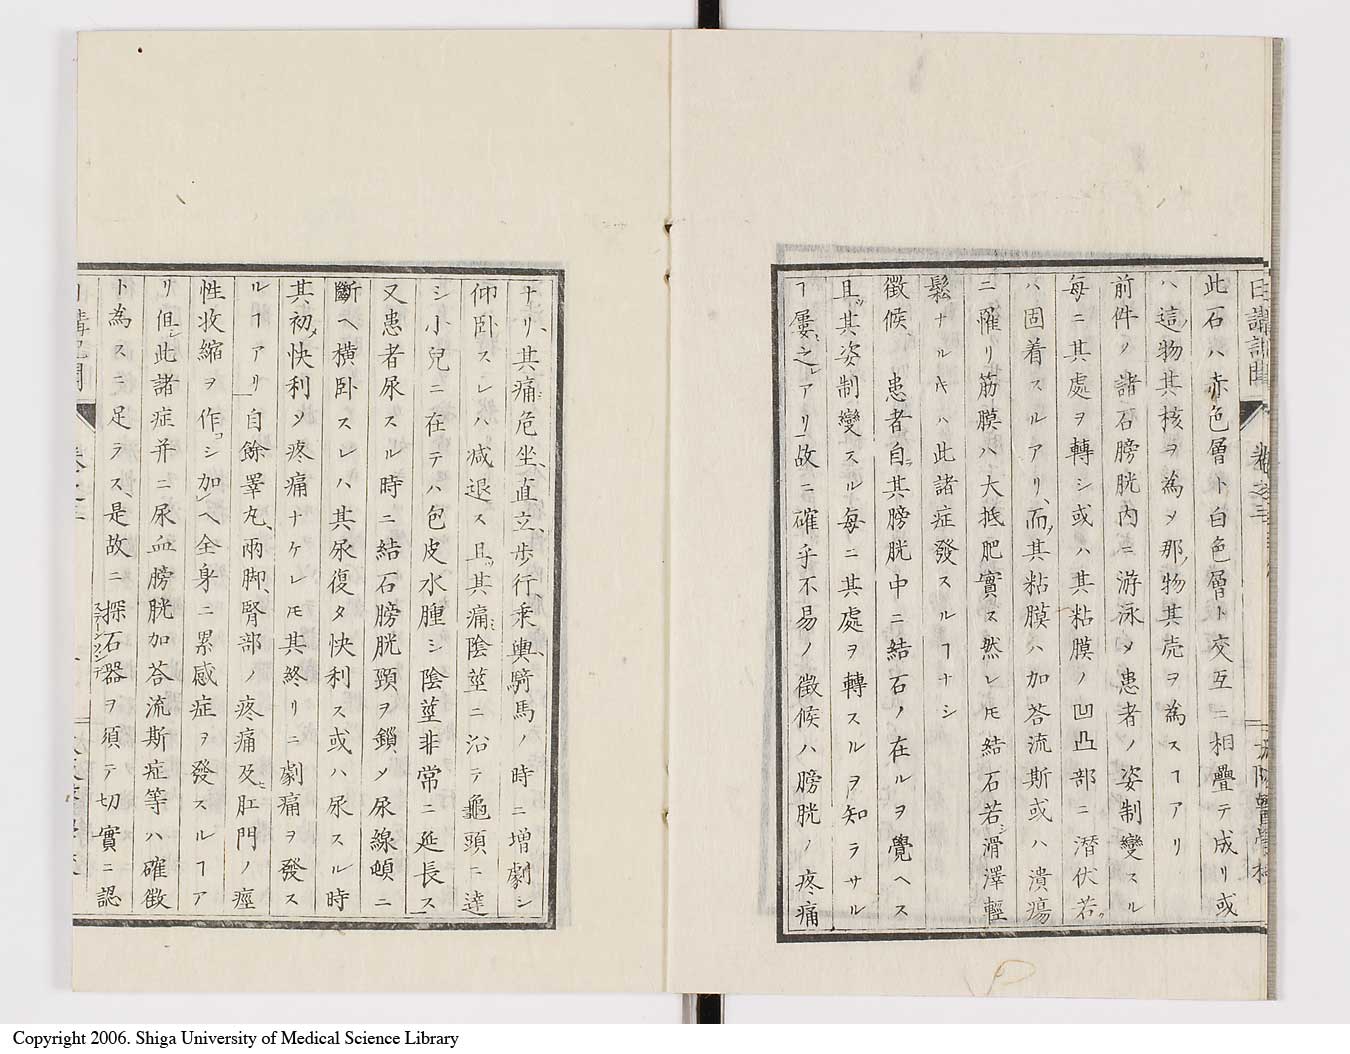 日講記聞 卷之三 大坂醫學校
此石ハ赤色層ト白色層ト交互ニ相疊テ成リ或
ハ這物其核ヲ為メ那物其壳ヲ為スヿアリ
前件ノ諸石膀胱内ニ游泳メ患者ノ姿制變スル
每ニ其處ヲ轉シ或ハ其粘膜ノ凹凸部ニ潛伏若ク
ハ固着スルアリ、而ノ其粘膜ハ加荅流斯或ハ潰瘍
ニ罹リ筋膜ハ大抵肥實ス然レ𪜈結石若シ滑澤輕
鬆ナルキハ此諸症發スルヿナシ
徵候 患者自ラ其膀胱中ニ結石ノ在ルヲ覺ヘス
且ツ其姿制變スル每ニ其處ヲ轉スルヲ知ラサル
ヿ屢之レアリ故ニ確乎不易ノ徵候ハ膀胱ノ疼痛
ナリ、其痛危坐、直立、步行、乘輿、騎馬ノ時ニ增劇シ
仰卧スレハ减退ス且ツ其痛ミ陰莖ニ沿テ龜頭ニ達
シ小兒ニ在テハ包皮水腫シ陰莖非常ニ延長ス
又患者尿スル時ニ結石膀胱頸ヲ鎖メ尿線頓ニ
斷ヘ横卧スレハ其尿復タ快利ス或ハ尿スル時
其初メ快利ソ疼痛ナケレ𪜈其終リニ劇痛ヲ發ス
ルヿアリ自餘睪丸、兩脚、腎部ノ疼痛及ヒ肛門ノ痙
性收縮ヲ作コシ加ヘ全身ニ累感症ヲ發スルヿア
リ但シ此諸症并ニ尿血膀胱加荅流斯症等ハ確徵
ト為スニ足ラス、是故ニ探石器ヲ須テ切實ニ認
ステーンソンデ